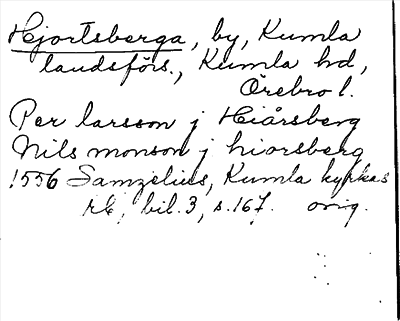 Hjortsberga, by, Kumla
landsförs., Kumla hd,
Örebro l.
Per larsson j Hiårsberg
Nils monson j hiorsberg
1556 Samzelius, Kumla kyrkas
rk, bil. 3, s. 167. orig.